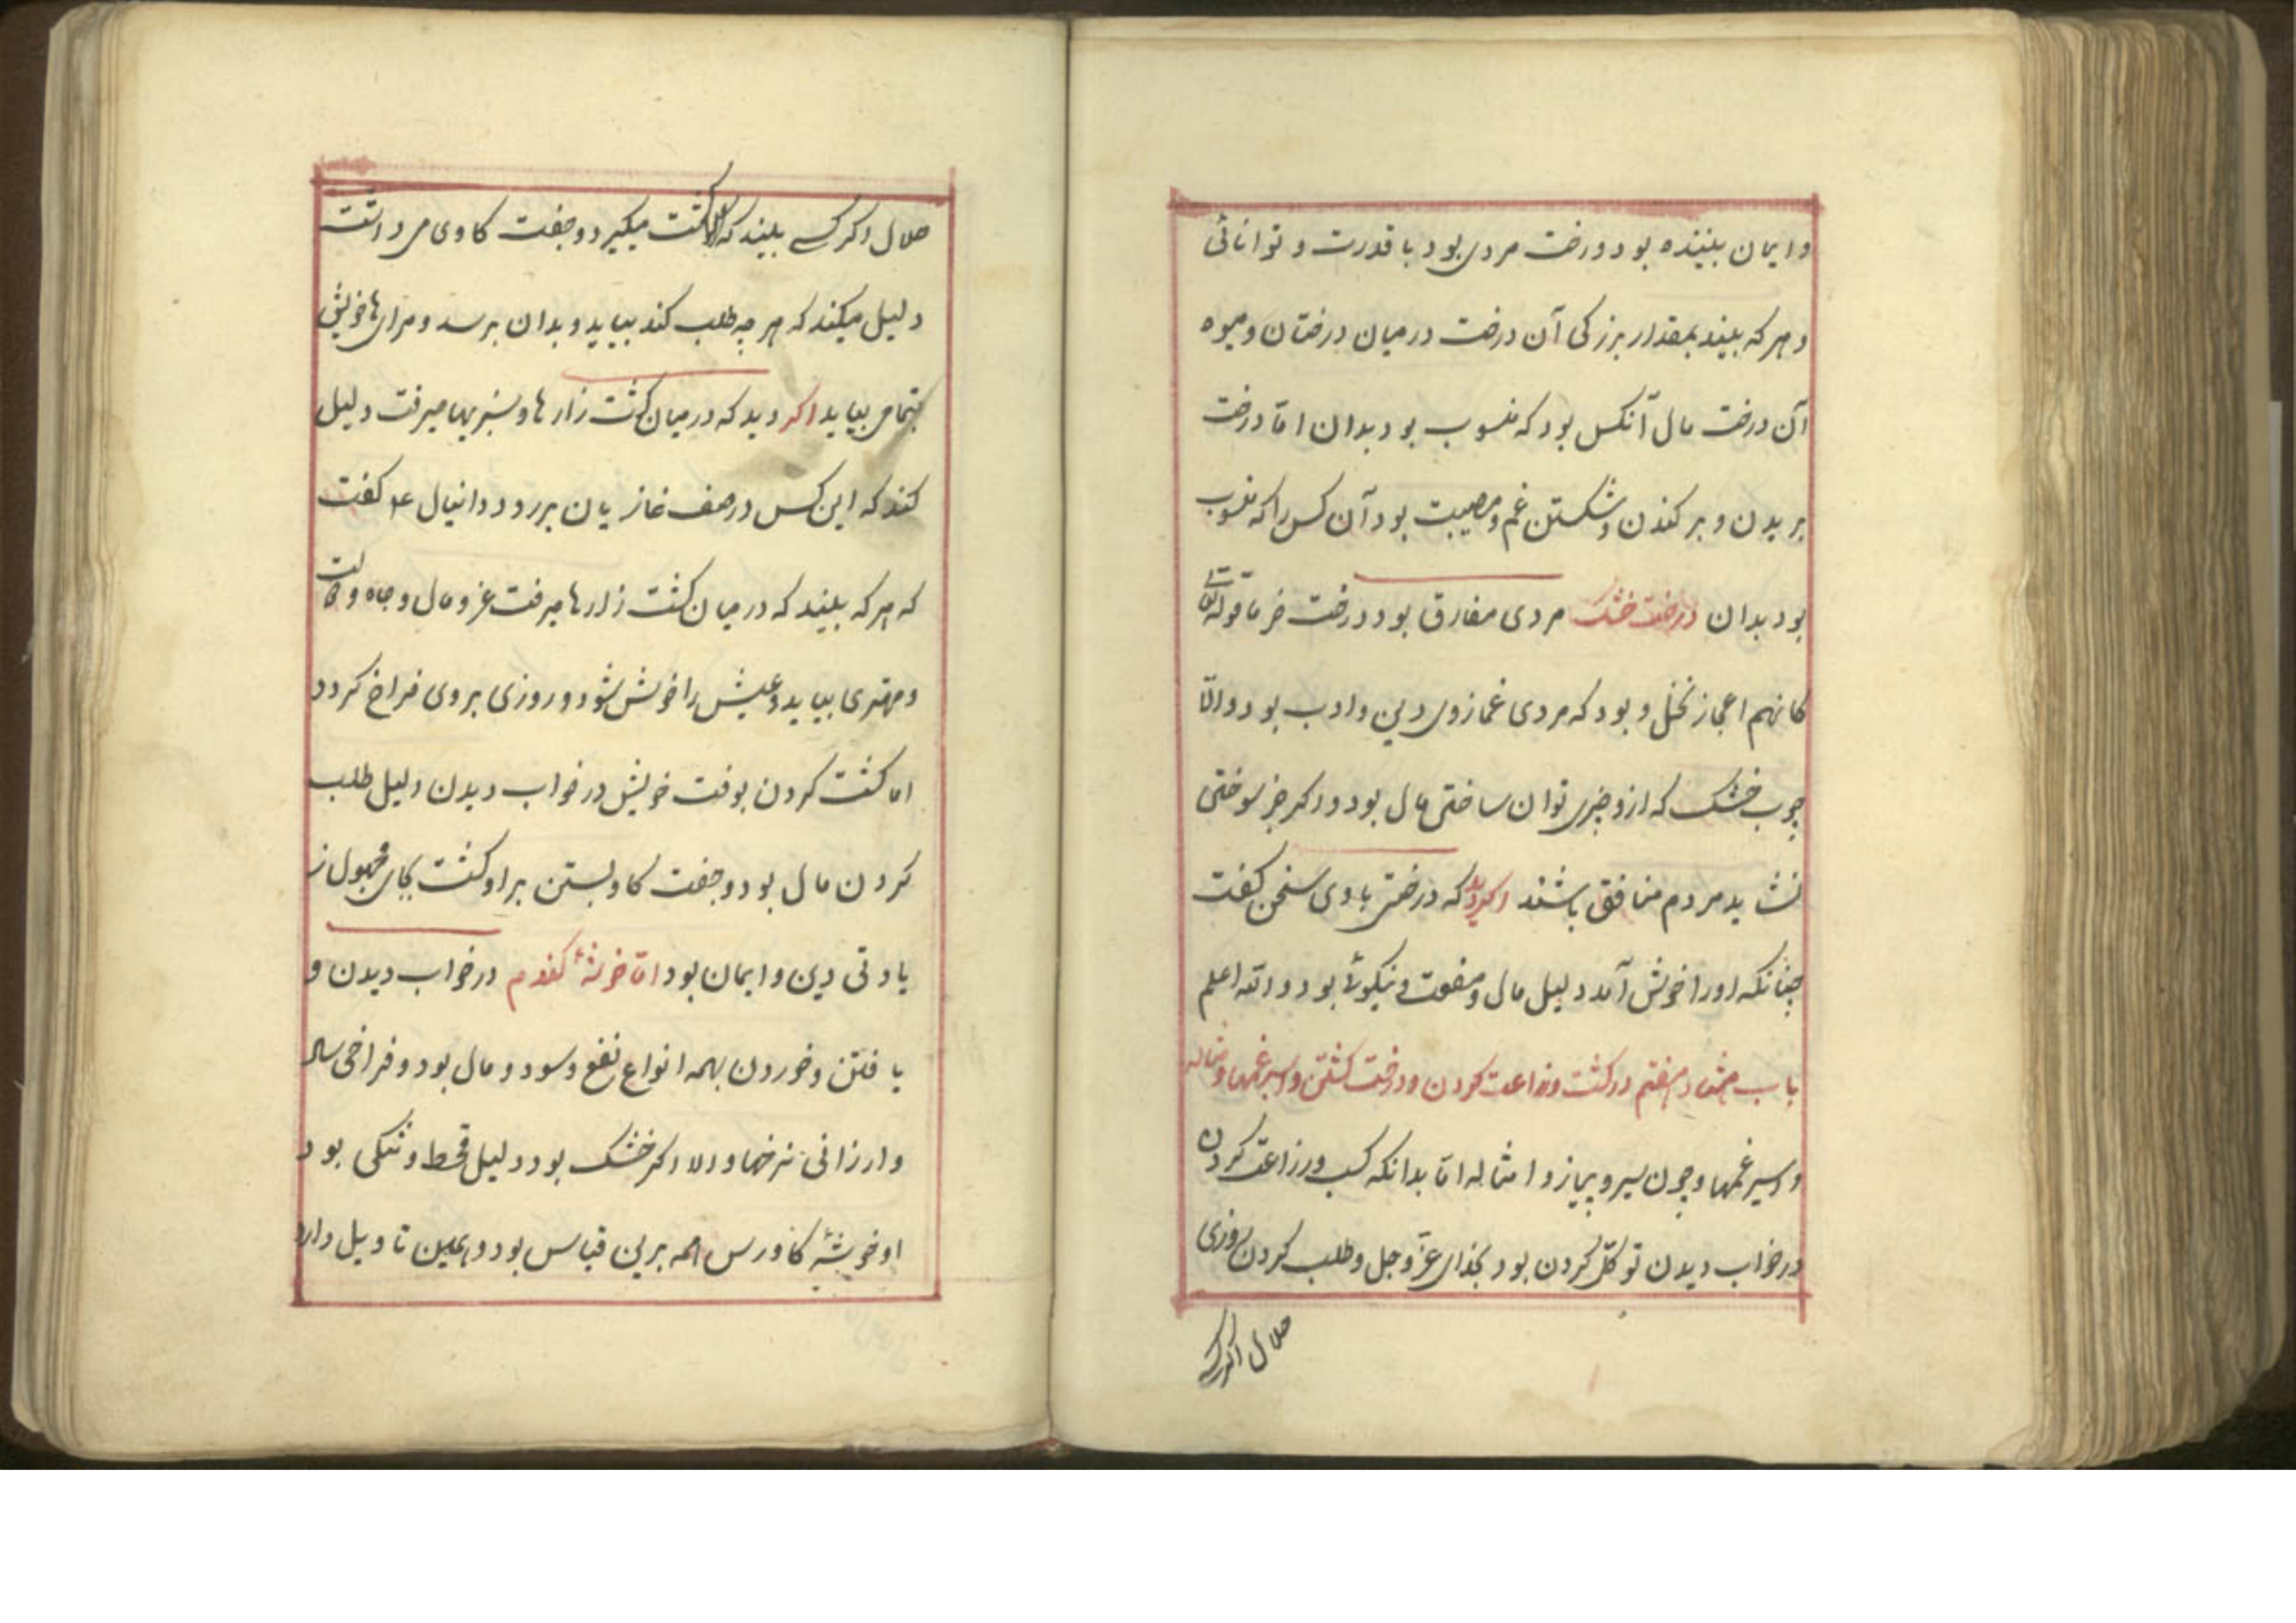 وایمان بیننده بود درخت مردی بود با قدرت و توانائی
و هر که بیند بمقدار بزرکی آن درخت در میان درختان و میوه
آن درخت مال آنکس بود که منسوب بود بدان امّا درخت
بریدن و برکندن و شکستن غم و مصیبت بود آن کس را که منسوب
بود بدان درخت خشک مردی منافق بود و درخت خرما قوله تعالی
کانهم اعجاز نخل و بود که مردی غماز وی دین و ادب بود و الّا
چوب خشک که ازو چیزی توان ساختی مال بود و اکر جز سوختی
نشاید مردم منافق باشند اکر دید که درختی با وی سخن کفت
چنانکه او را خوش آمد دلیل مال و منفعت و نیکوئی بود والله اعلم
باب هشتاد هفتم در کشت و زراعت کردن و درخت کشتن و اسپرغمها و مثاله
و اسپرغمها و چون سیر و پیاز و امثاله امّا بدانکه کسب و زراعت کردن
در خواب دیدن توکّل کردن بود بخدای عزّ و جل و طلب کردن روزی
حلال اکر کسی
حلال اکر کسے بیند که کشت میکیرد و جفت کاوی میراند
دلیل میکند که هر چه طلب کند بیابد و بدان برسد و مرادها خویش
بتمامی بیابد اکر دید که در میان کشت زارها و سبزیها میرفت دلیل
کند که این کس در صف غازیان برود و دانیال ع کفت
که هر که بیند که در میان کشت زارها میرفت عز و مال و جاه و
و مهتری بیابد و عیش را خوش شود و روزی بروی فراخ کردد
اما کشت کردن بوقت خویش در خواب دیدن دلیل طلب
کردن مال بود و جفت کاو بستن براو کشت بجای مجهول ز
یادتی دین و ایمان بود امّا خوشهٔ کندم در خواب دیدن و
یافتن و خوردن بهمه انواع نفع و سود و مال بود و فراخی سال
و ارزانی نرخها و الا اکر خشک بود دلیل قحط و تنکی بود
اوخوشهٔ کاورس همه برین قیاس بود و همین تاویل دارد